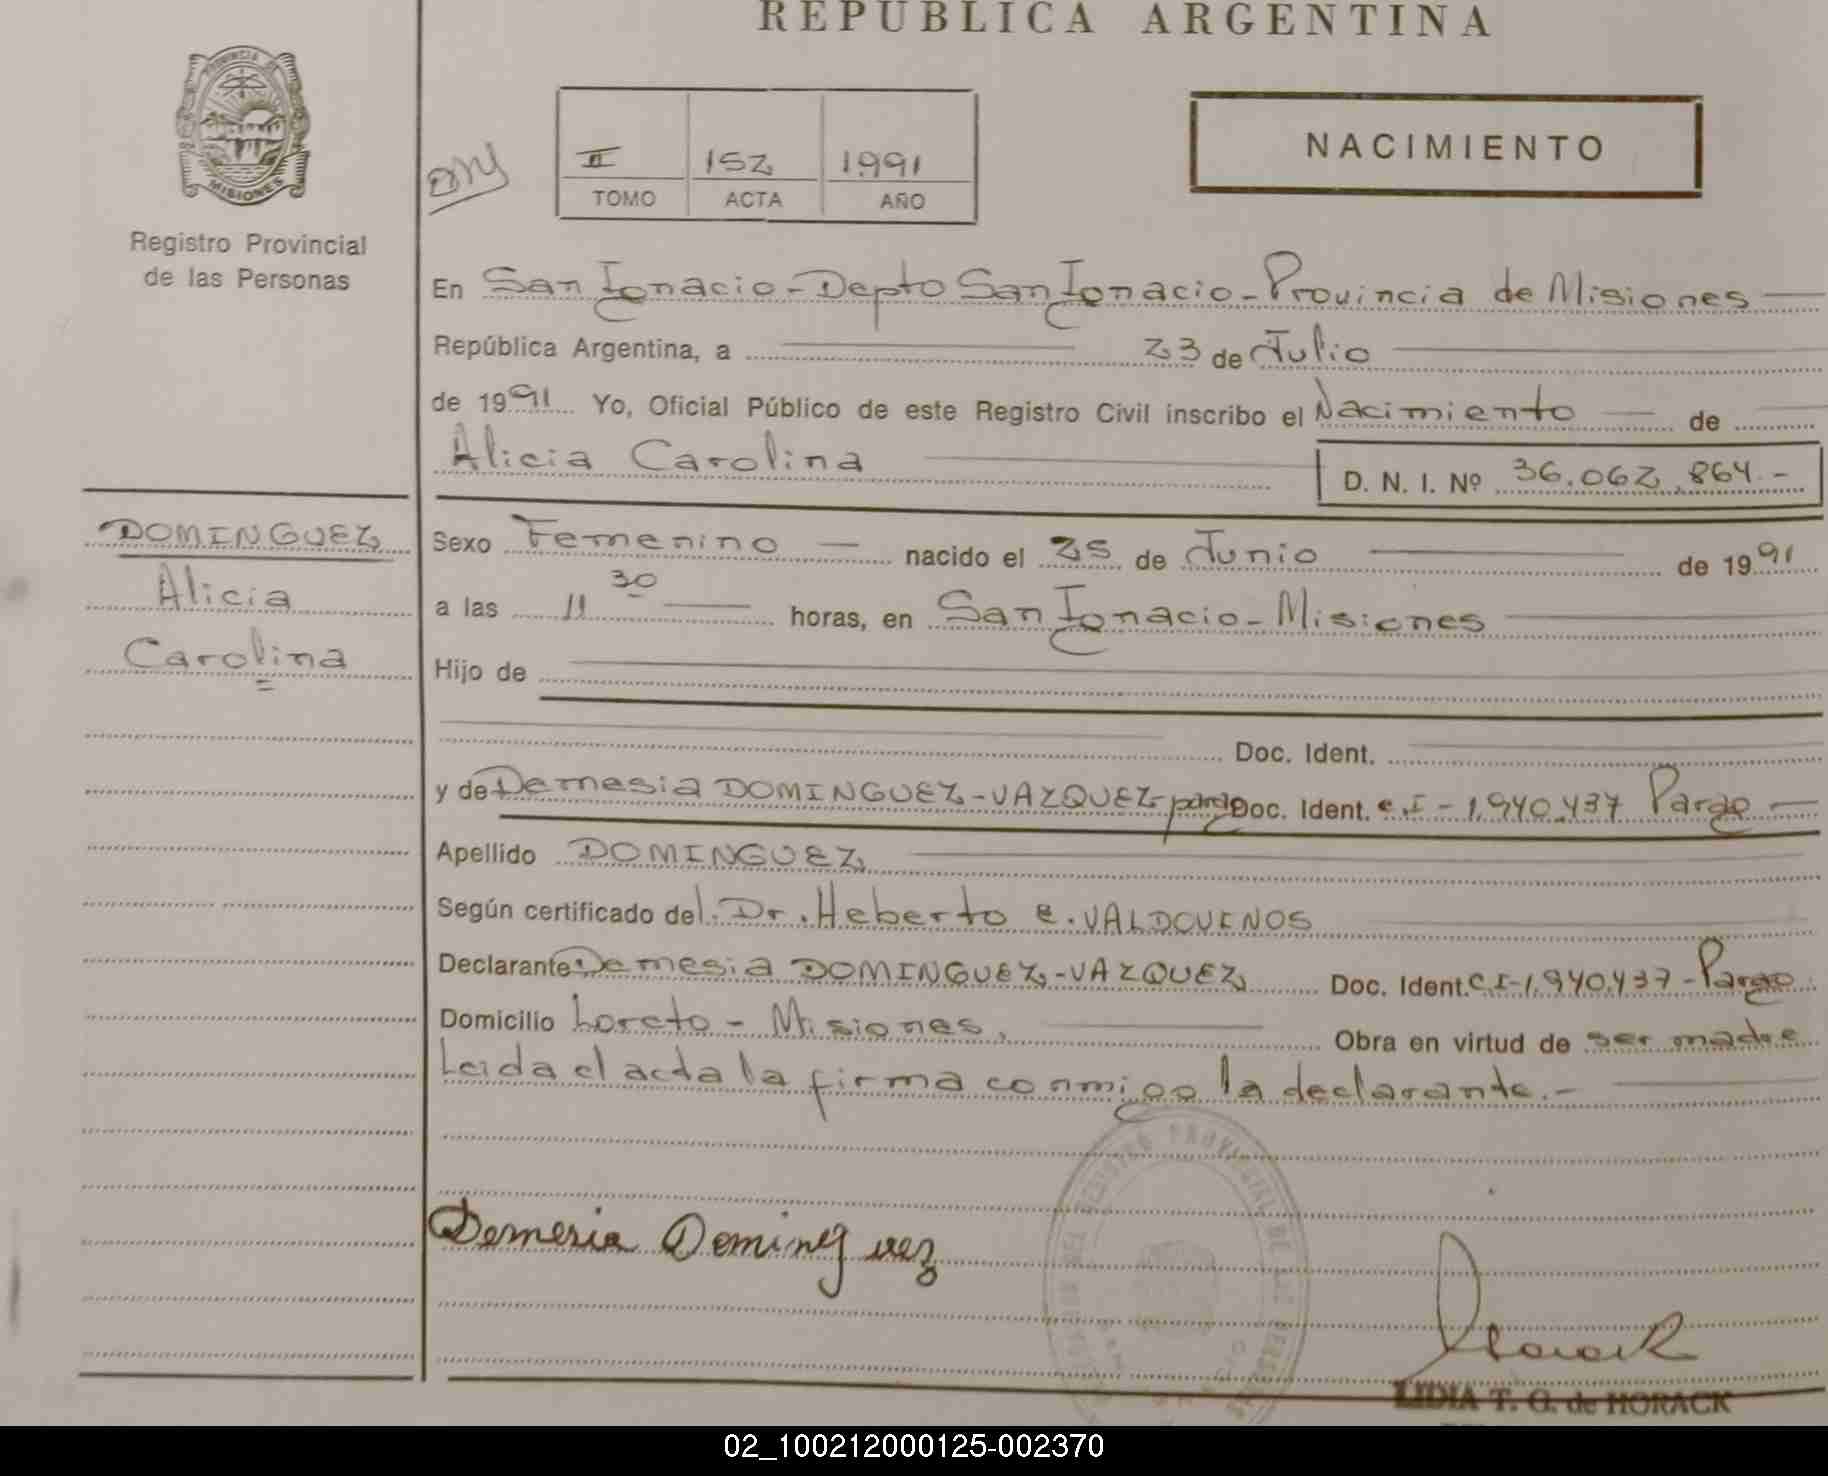 REPUBLICA ARGENTINA
PROVINCIA DE
MISIONES
Registro Provincial
de las Personas
II 152 1991
TOMO ACTA AÑO
NACIMIENTO
En San Ignacio - Depto San Ignacio - Provincia de Misiones
República Argentina, a 23 de Julio
de 1991 Yo, Oficial Público de este Registro Civil inscribo el Nacimiento de
Alicia Carolina
D. N. I. Nº 36.062.864.-
DOMINGUEZ
Alicia
Carolina
Sexo Femenino nacido el 25 de Junio de 1991
a las 11 30 horas, en San Ignacio - Misiones
Hijo de
Doc. Ident.
y de Demesia DOMINGUEZ-VAZQUEZ- parag Doc. Ident. C.I - 1.940.437 Parag
Apellido DOMINGUEZ
Según certificado del Dr. Heberto E. VALDOVINOS
Declarante Demesia DOMINGUEZ-VAZQUEZ Doc. Ident. C.I-1.940.437 - Parag
Domicilio Loreto - Misiones, Obra en virtud de ser madre
Leida el acta la firma conmigo la declarante.-
Demesia Dominguez
Horack
LIDIA T. G. de HORACK
02_100212000125-002370